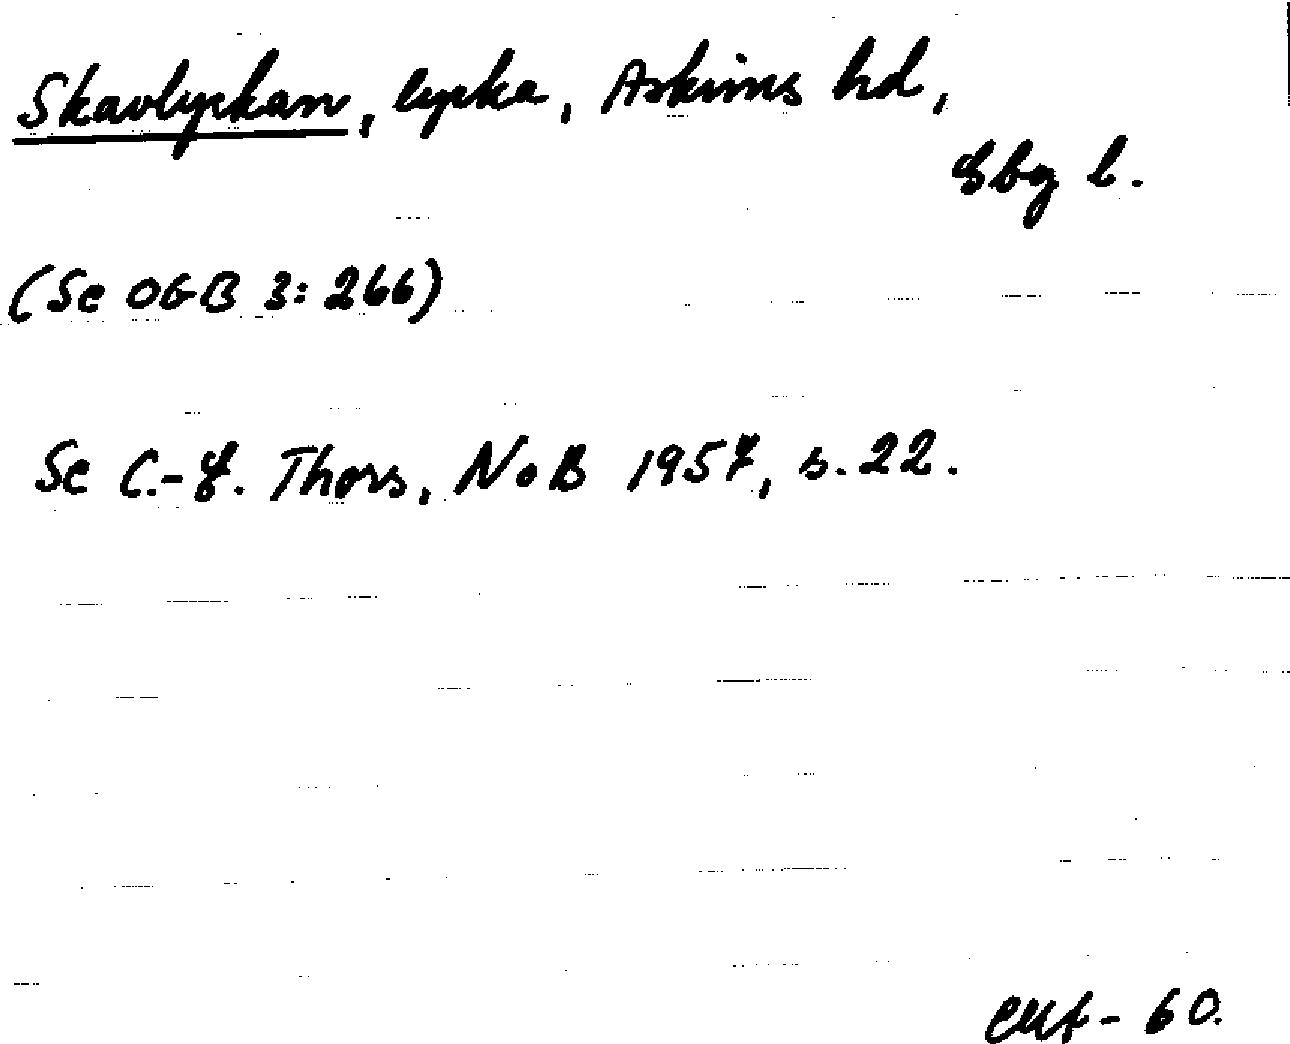 Skavlyckan, lycka, Askims hd,
Gbg l.
(Se OGB 3: 266)
Se C.-E. Thors, NoB 1957, s. 22.
-60.